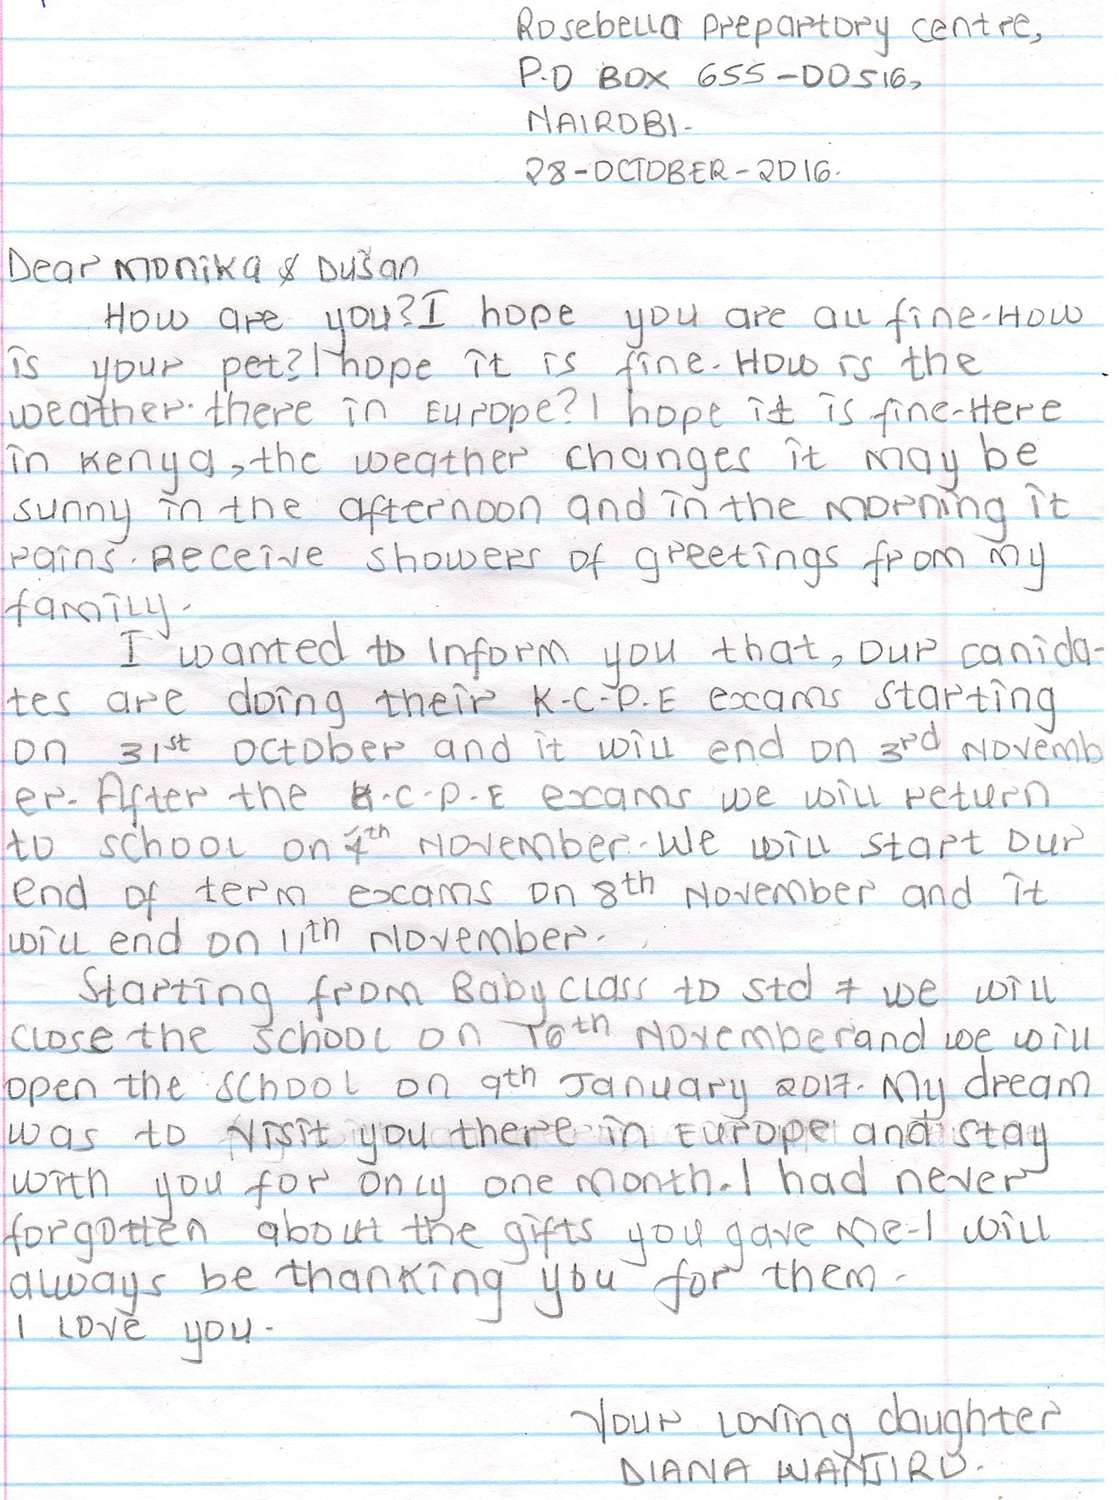 Rosebella Prepartory centre,
P.O BOX 655-00516,
NAIROBI.
28-OCTOBER-2016.
Dear Monika & Dušan
How are you? I hope you are all fine. How
is your pet? I hope it is fine. How is the
weather there in Europe? I hope it is fine. Here
in Kenya, the weather changes it may be
sunny in the afternoon and in the morning it
rains. Receive showers of greetings from my
family.
I wanted to inform you that, our canida-
tes are doing their K.C.P.E exams starting
on 31st October and it will end on 3rd Novemb
er. After the K.C.P.E exams we will return
to school on 4th November. We will start our
end of term exams on 8th November and it
will end on 11th November.
Starting from Baby class to std 7 we will
close the school on 16th November and we will
open the school on 9th January 2017. My dream
was to visit you there in Europe and stay
with you for only one month. I had never
forgotten about the gifts you gave me. I will
always be thanking you for them.
I love you.
Your loving daughter
DIANA WANJIRU.